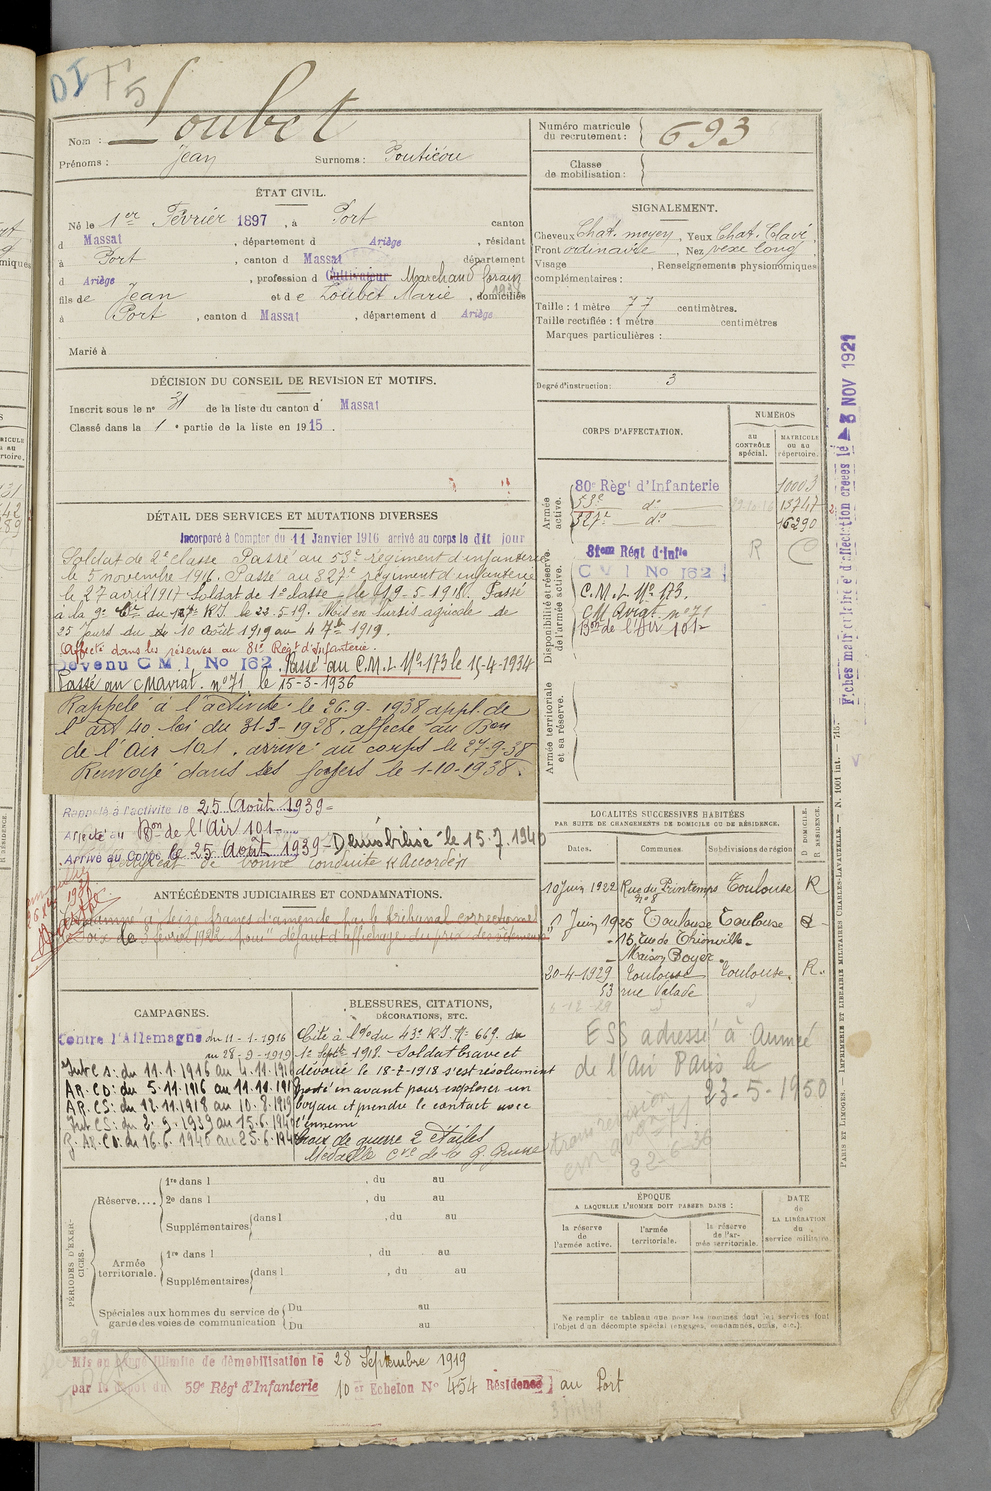 DI F5
Nom : Loubet
Prénoms : Jean Surnoms :
Numéro matricule du recrutement : 693
Classe de mobilisation :
ÉTAT CIVIL.
Né le 1er Février 1897, à Port canton
d Massat, département d Ariège, résidant
à Port, canton d Massat département
d Ariège, profession d Cultivateur Marchand forain
fils de Jean et de Loubet Marie, domiciliés
à Port, canton d Massat, département d Ariège
Marié à
SIGNALEMENT.
Cheveux Chat. moyen, Yeux Chat. Clair,
Front ordinaire, Nez vexe long,
Visage , Renseignements physionomiques
complémentaires :
Taille : 1 mètre 77 centimètres.
Taille rectifiée : 1 mètre centimètres
Marques particulières :
Degré d'instruction : 3
DÉCISION DU CONSEIL DE REVISION ET MOTIFS.
Inscrit sous le n° 31 de la liste du canton d Massat
Classé dans la 1e partie de la liste en 1915.
DÉTAIL DES SERVICES ET MUTATIONS DIVERSES
Incorporé à Compter du 11 Janvier 1916 arrivé au corps le dit jour
Soldat de 2e classe Passé au 53e régiment d'infanterie
le 5 novembre 1916. Passé au 327e régiment d'infanterie
le 27 avril 1917 Soldat de 1e classe le 19-5-1918. Passé
à la 9e Cie du R.I. le 22.5.19. Mis en sursis agricole de
25 jours du 10 Août 1919 au 4 7bre 1919.
Affecté dans les réserves au 81e Régt d'Infanterie.
Devenu C M I No 162. Passé au C.M.I. No 173 le 15-4-1934
Passé au CMavrat. n°71 le 15-3-1936
Rappelé à l'activité le 26.9.1938 appl. de
l'art 40 loi du 31-3-1928, affecté au Bon
de l'Air 101. arrivé au corps le 27-9-38
Renvoyé dans ses foyers le 1-10-1938.
Rappelé à l'activité le 25 Août 1939
Affecté au Bon de l'Air 101
Arrivé au Corps le 25 Août 1939 - Démobilisé le 15.7.1940
Certificat de bonne conduite "Accordé"
ANTÉCÉDENTS JUDICIAIRES ET CONDAMNATIONS.
Condamné à seize francs d'amende par le tribunal correctionnel
de Foix le 3 février 1922 pour "défaut d'affichage du prix des vêtements"
CORPS D'AFFECTATION.
NUMÉROS
au CONTRÔLE spécial.
MATRICULE ou au répertoire.
Armée active.
80e Régt d'Infanterie 10003
53e do 13747
327e do 16290
Disponibilité et réserve de l'armée active.
81em Régt d'Infie R
C M I No 162
C.M.I. No 173.
CM Avrat n°71
Bon de l'Air 101
Armée territoriale et sa réserve.
Fiches matriculaire et d'affectation créées le 3 NOV 1921
LOCALITÉS SUCCESSIVES HABITÉES
PAR SUITE DE CHANGEMENTS DE DOMICILE OU DE RÉSIDENCE.
Dates. Communes. Subdivisions de région D. DOMICILE. R. RÉSIDENCE.
10 Juin 1922 Rue du Printemps n°8 Toulouse R
Juin 1925 Toulouse Toulouse
15, rue de Thionville
Maison Boyer
20-4-1929 Toulouse Toulouse. R.
53 rue Valade
ESS adressé à Armée
de l'Air Paris le
23-5-1950
22-6-36
CAMPAGNES.
Contre l'Allemagne du 11-1-1916
au 28-9-1919
Int CS: du 11.1.1916 au 4.11.1916
AR.CD: du 5.11.1916 au 11.11.1918
AR.CS: du 12.11.1918 au 10.8.1919
Int CS: du 2.9.1939 au 15.6.1940
AR.CD: du 16.6.1940 au 25.6.1940
BLESSURES, CITATIONS,
DÉCORATIONS, ETC.
Cité à l'O du 43e R.I. No 669 du
1e Septbre 1918. Soldat brave et
dévoué le 18-7-1918 s'est résolument
porté en avant pour explorer un
boyau et prendre le contact avec
l'ennemi
Croix de guerre 2 étoiles
Médaille Cve de la G. Guerre
PÉRIODES D'EXERCICES.
Réserve.... 1re dans l , du au
2e dans l , du au
Supplémentaires dans l , du au
Armée territoriale. 1re dans l , du au
Supplémentaires dans l , du au
Spéciales aux hommes du service de garde des voies de communication Du au
Du au
ÉPOQUE
A LAQUELLE L'HOMME DOIT PASSER DANS :
la réserve de l'armée active.
l'armée territoriale.
la réserve de l'armée territoriale.
DATE de LA LIBÉRATION du service militaire.
Ne remplir ce tableau que pour les hommes dont les services font
l'objet d'un décompte spécial (engagés, condamnés, omis, etc.).
PARIS ET LIMOGES. — IMPRIMERIE ET LIBRAIRIE MILITAIRES CHARLES-LAVAUZELLE. — N. 1001 int. — 715.
Mis en congé illimité de démobilisation le 28 Septembre 1919
par le dépôt du 59e Régt d'Infanterie 10 er Echelon No 454 Résidence au Port